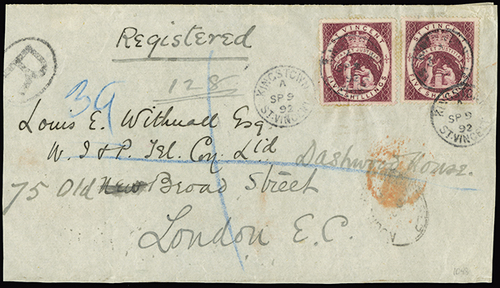 Registered
128
39
Louis E. Withnall Esq
W. I & P. Tel. Coy. Ltd
Dashwood House.
75 Old New Broad Street
London E.C.
ST VINCENT
FIVE SHILLINGS
ST VINCENT
FIVE SHILLINGS
KINGSTOWN
A
SP 9
92
ST. VINCENT
KINGSTOWN
A
SP 9
92
ST. VINCENT
R